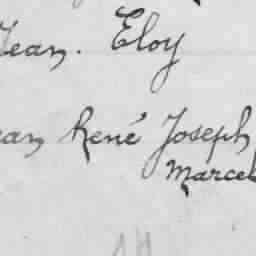 Jean. Eloy
ean René Joseph
Marcel